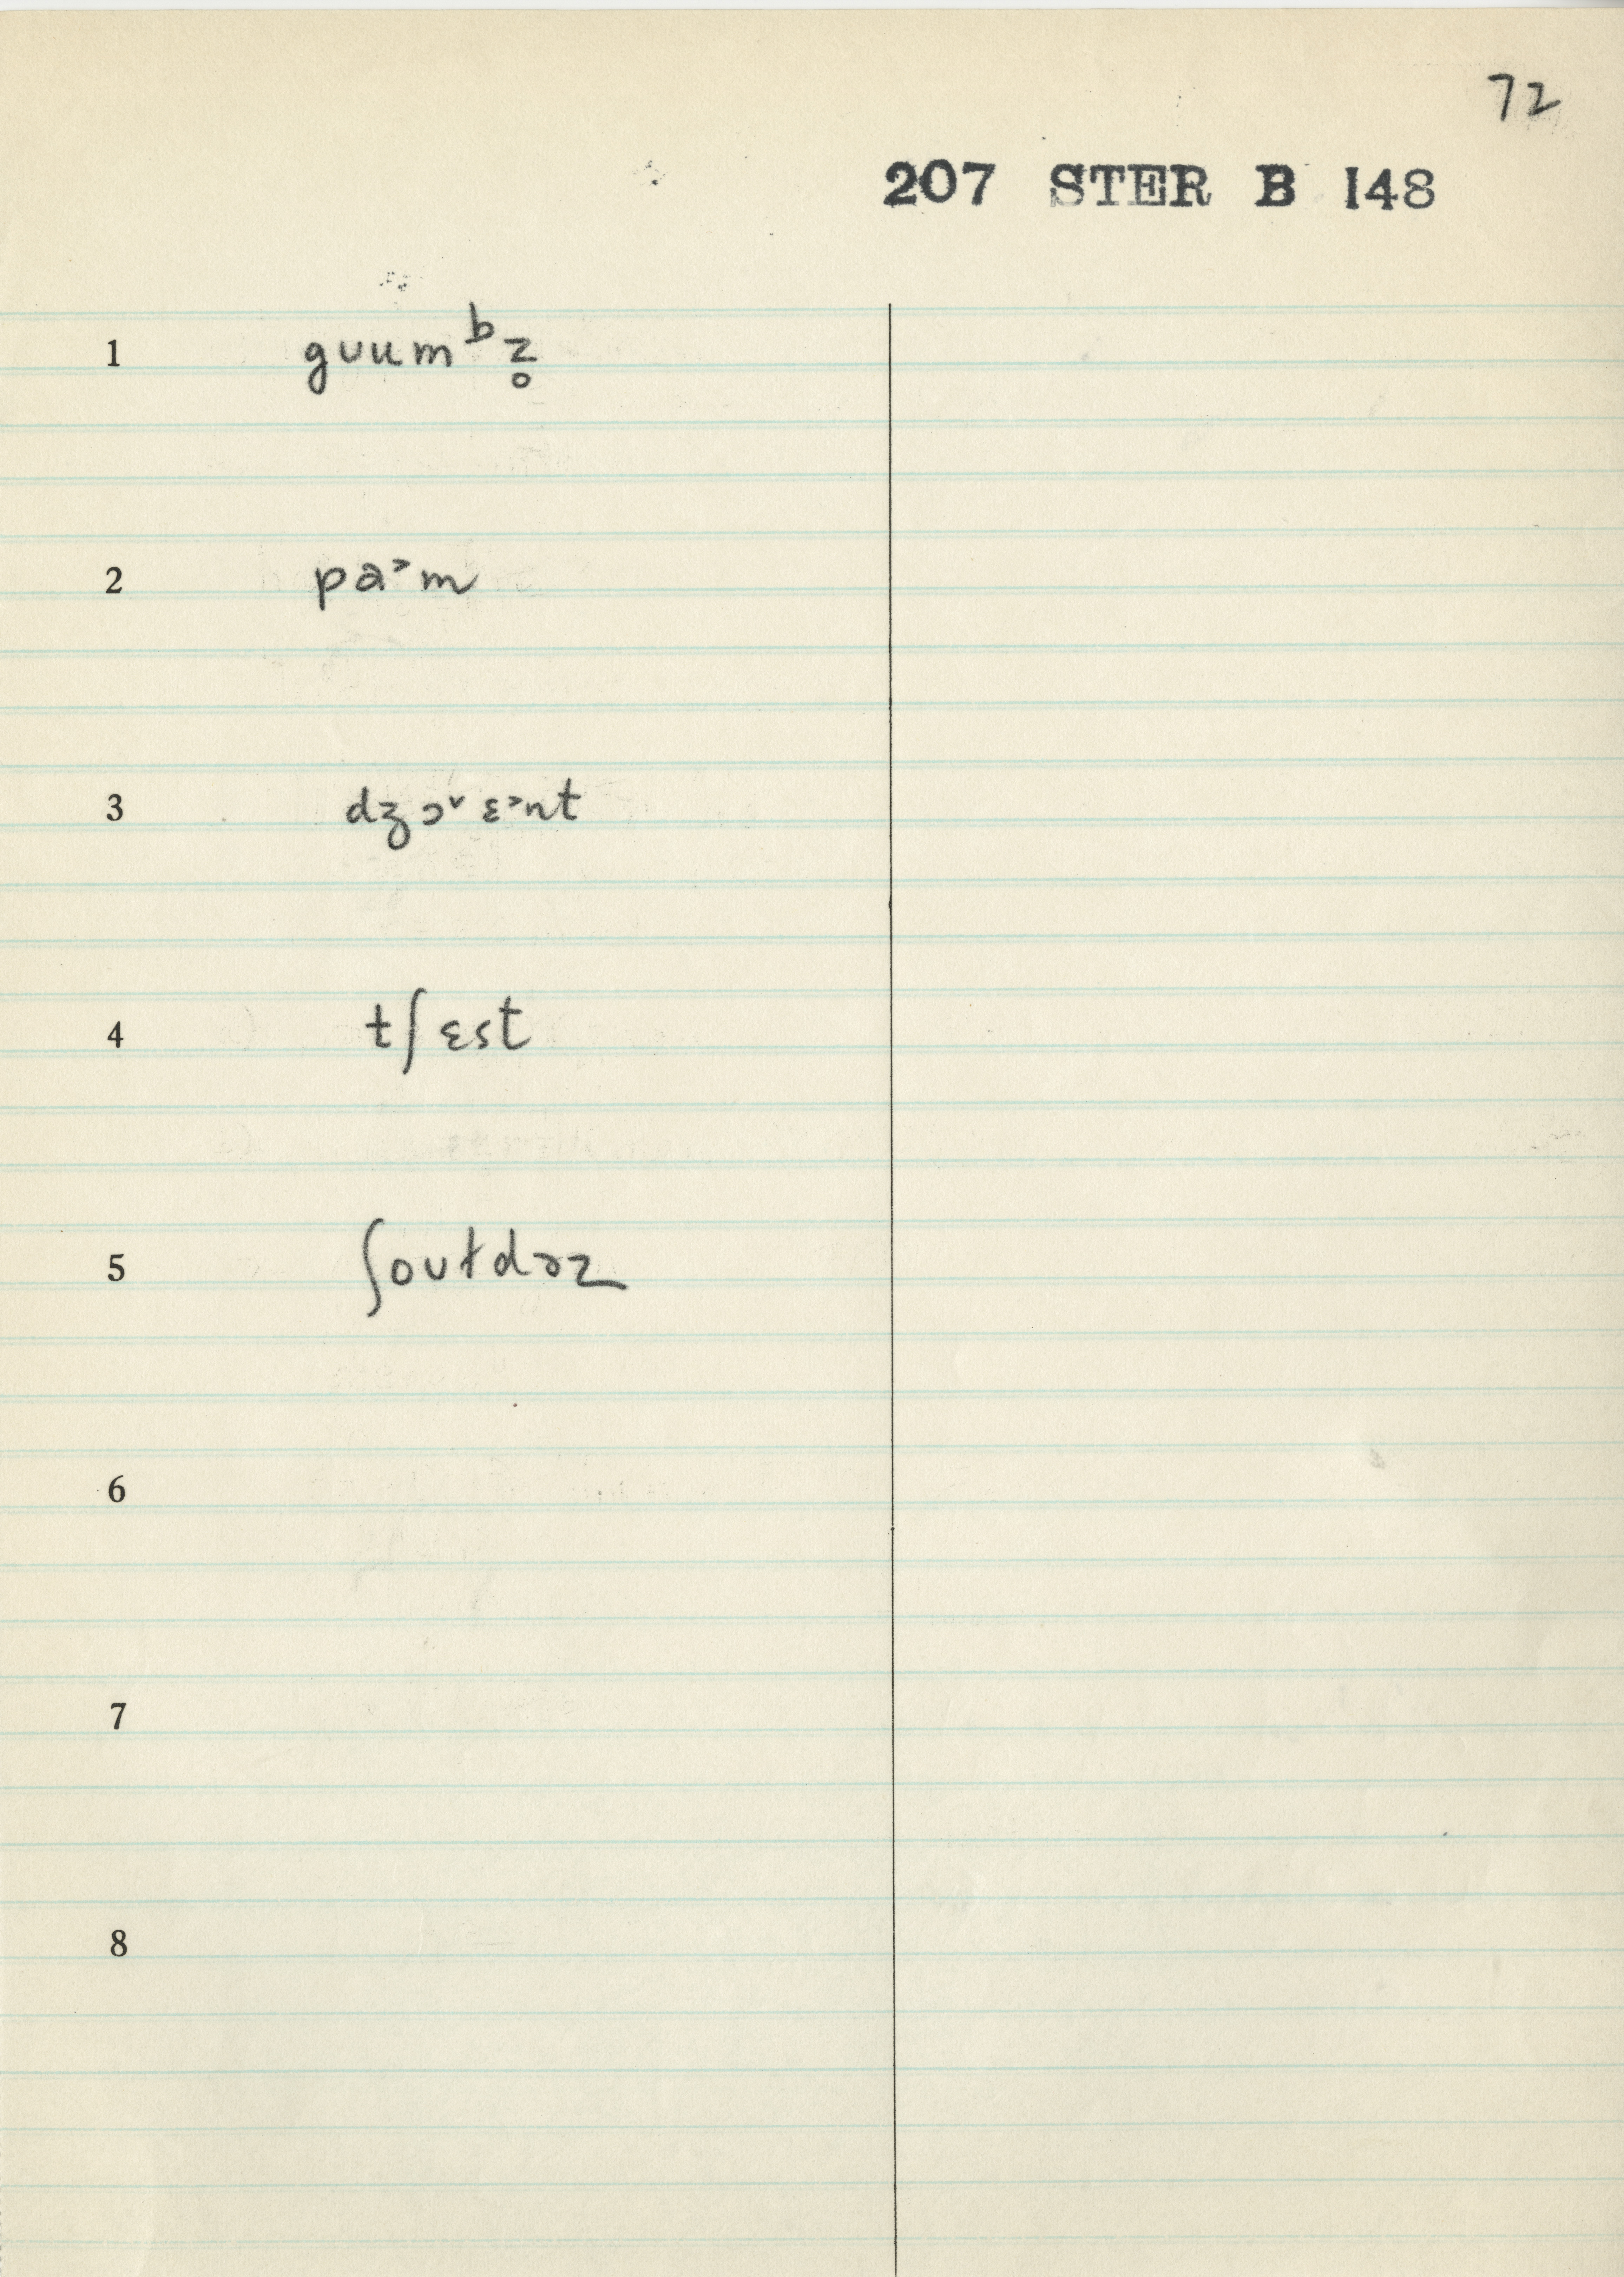 72
207 STER B 148
1 guum ᵇz̥
2 pa˃m
3 dʒɔ˅ ɛ˃nt
4 tʃɛst
5 ʃoʊɫdɚz
6
7
8